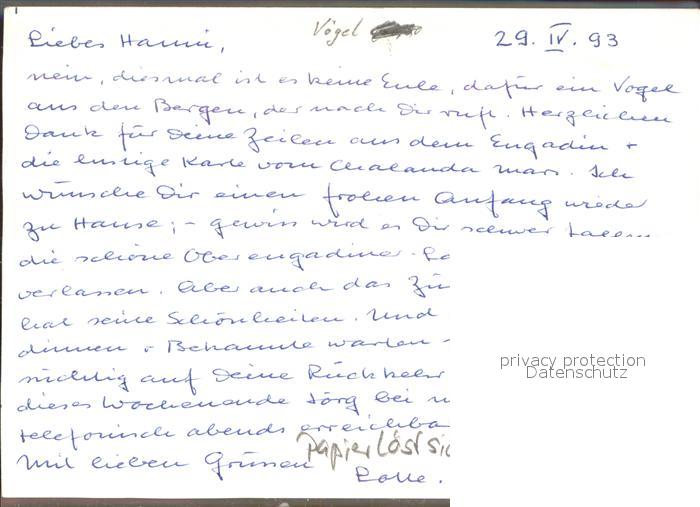 Vögel
29. IV. 93
Liebes Hanni,
nein, diesmal ist es keine Eule, dafür ein Vogel
aus den Bergen, der nach Dir ruft. Herzlichen
Dank für Deine Zeilen aus dem Engadin +
die lustige Karte vom Chalanda mars. Ich
wünsche Dir einen frohen Anfang wieder
zu Hause; - gewiss wird es Dir schwer fallen
die schöne Oberengadiner-
verlassen. Aber auch das Zü
hat seine Schönheiten. Und
dinnen + Bekannte warten
süchtig auf Deine Rückkehr
dieses Wochenende Jörg bei
telefonisch abends erreichba
Papier löst sic
Mit lieben Grüssen
Lotte.
privacy protection
Datenschutz